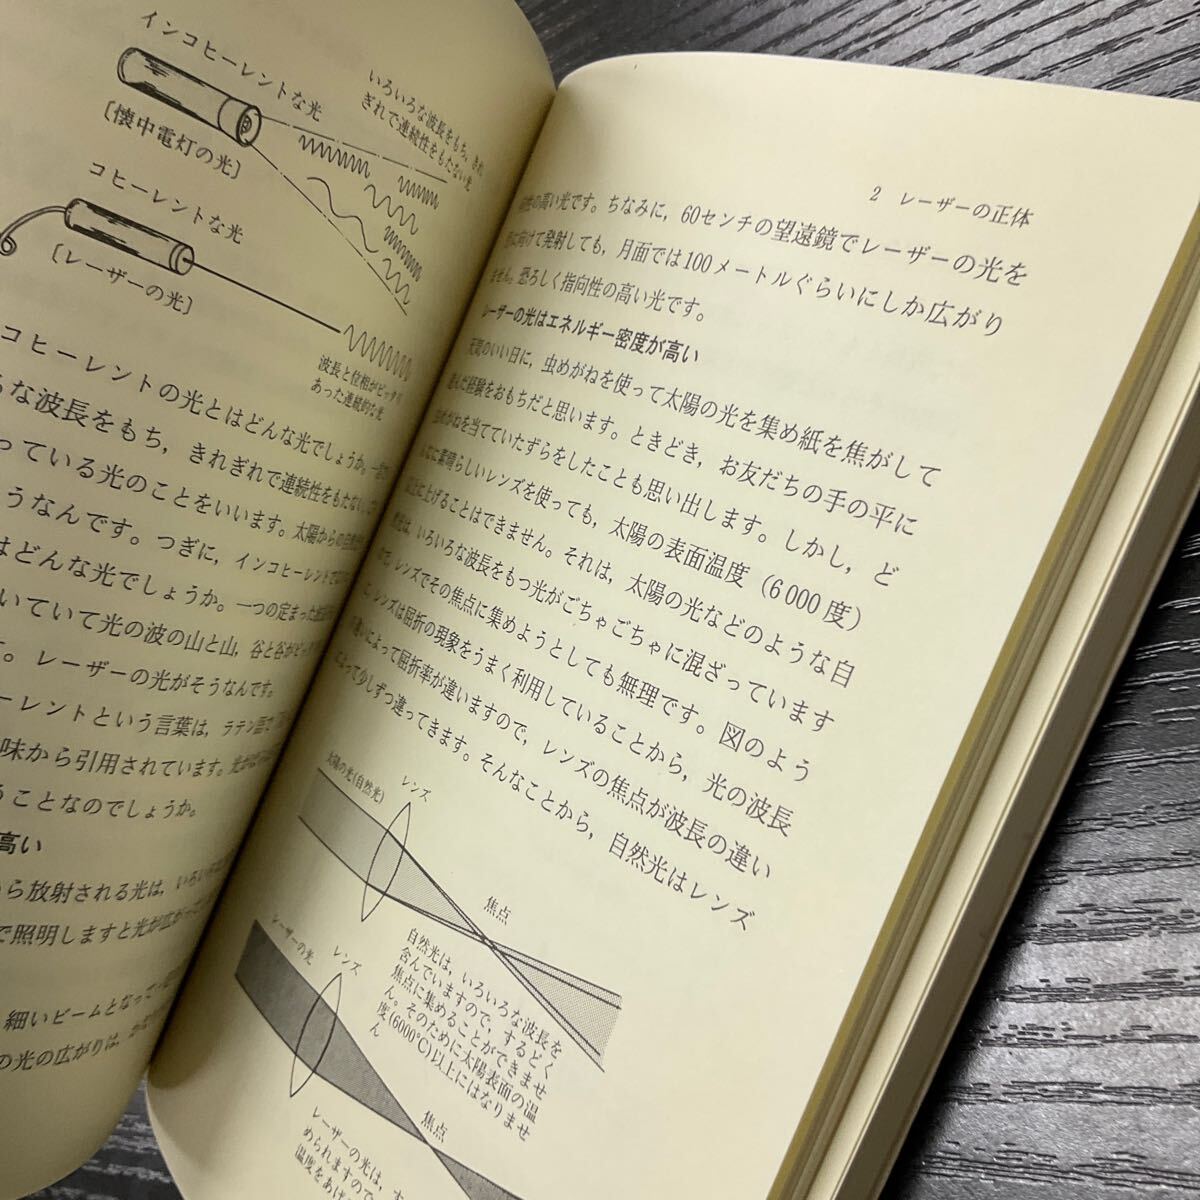 インコヒーレントな光
いろいろな波長をもち，きれ
ぎれで連続性をもたない光
〔懐中電灯の光〕
コヒーレントな光
〔レーザーの光〕
波長と位相がピッタリ
あった連続的な光
コヒーレントの光とはどんな光でしょうか。一
な波長をもち，きれぎれで連続性をもたない
っている光のことをいいます。太陽からの
うなんです。つぎに，インコヒーレントで
はどんな光でしょうか。一つの定まった
いていて光の波の山と山，谷と谷が
す。レーザーの光がそうなんです。
ーレントという言葉は，ラテン語で
味から引用されています。光が
ることなのでしょうか。
高い
ら放射される光は，いろいろ
で照明しますと光が広が
細いビームとなって
の光の広がりは，
2 レーザーの正体
性の高い光です。ちなみに，60センチの望遠鏡でレーザーの光を
に向けて発射しても，月面では100メートルぐらいにしか広がり
ません。恐ろしく指向性の高い光です。
レーザーの光はエネルギー密度が高い
天気のいい日に，虫めがねを使って太陽の光を集め紙を焦がして
遊んだ経験をおもちだと思います。ときどき，お友だちの手の平に
虫めがねを当てていたずらをしたことも思い出します。しかし，ど
んなに素晴らしいレンズを使っても，太陽の表面温度（6000度）
以上に上げることはできません。それは，太陽の光などのような自
然光は，いろいろな波長をもつ光がごちゃごちゃに混ざっています
ので，レンズでその焦点に集めようとしても無理です。図のよう
に，レンズは屈折の現象をうまく利用していることから，光の波長
の違いによって屈折率が違いますので，レンズの焦点が波長の違い
によって少しずつ違ってきます。そんなことから，自然光はレンズ
太陽の光(自然光)
レンズ
焦点
自然光は，いろいろな波長を
含んでいますので，するどく
焦点に集めることができませ
ん。そのために太陽表面の温
度(6000℃)以上にはなりませ
ん
レーザーの光
レンズ
焦点
レーザーの光は，す
められますので
温度をあげる